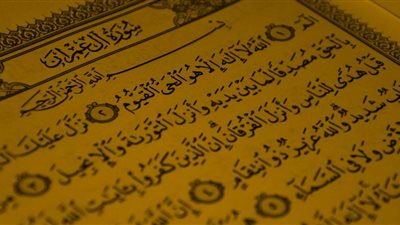 سُورَةُ آلِ عِمْرَانَ
بِسْمِ اللَّهِ الرَّحْمَٰنِ الرَّحِيمِ
الٓمٓ ١ اللَّهُ لَا إِلَٰهَ إِلَّا هُوَ الْحَيُّ الْقَيُّومُ ٢ نَزَّلَ عَلَيْكَ
بِالْحَقِّ مُصَدِّقًا لِمَا بَيْنَ يَدَيْهِ وَأَنْزَلَ التَّوْرَىٰةَ وَالْإِنْجِيلَ
قَبْلُ هُدًى لِلنَّاسِ وَأَنْزَلَ الْفُرْقَانَ إِنَّ الَّذِينَ كَفَرُوا بِآيَاتِ اللَّهِ
شَدِيدٌ وَاللَّهُ عَزِيزٌ ذُو انْتِقَامٍ ٤ إِنَّ اللَّهَ
وَلَا فِي السَّمَاءِ ٥